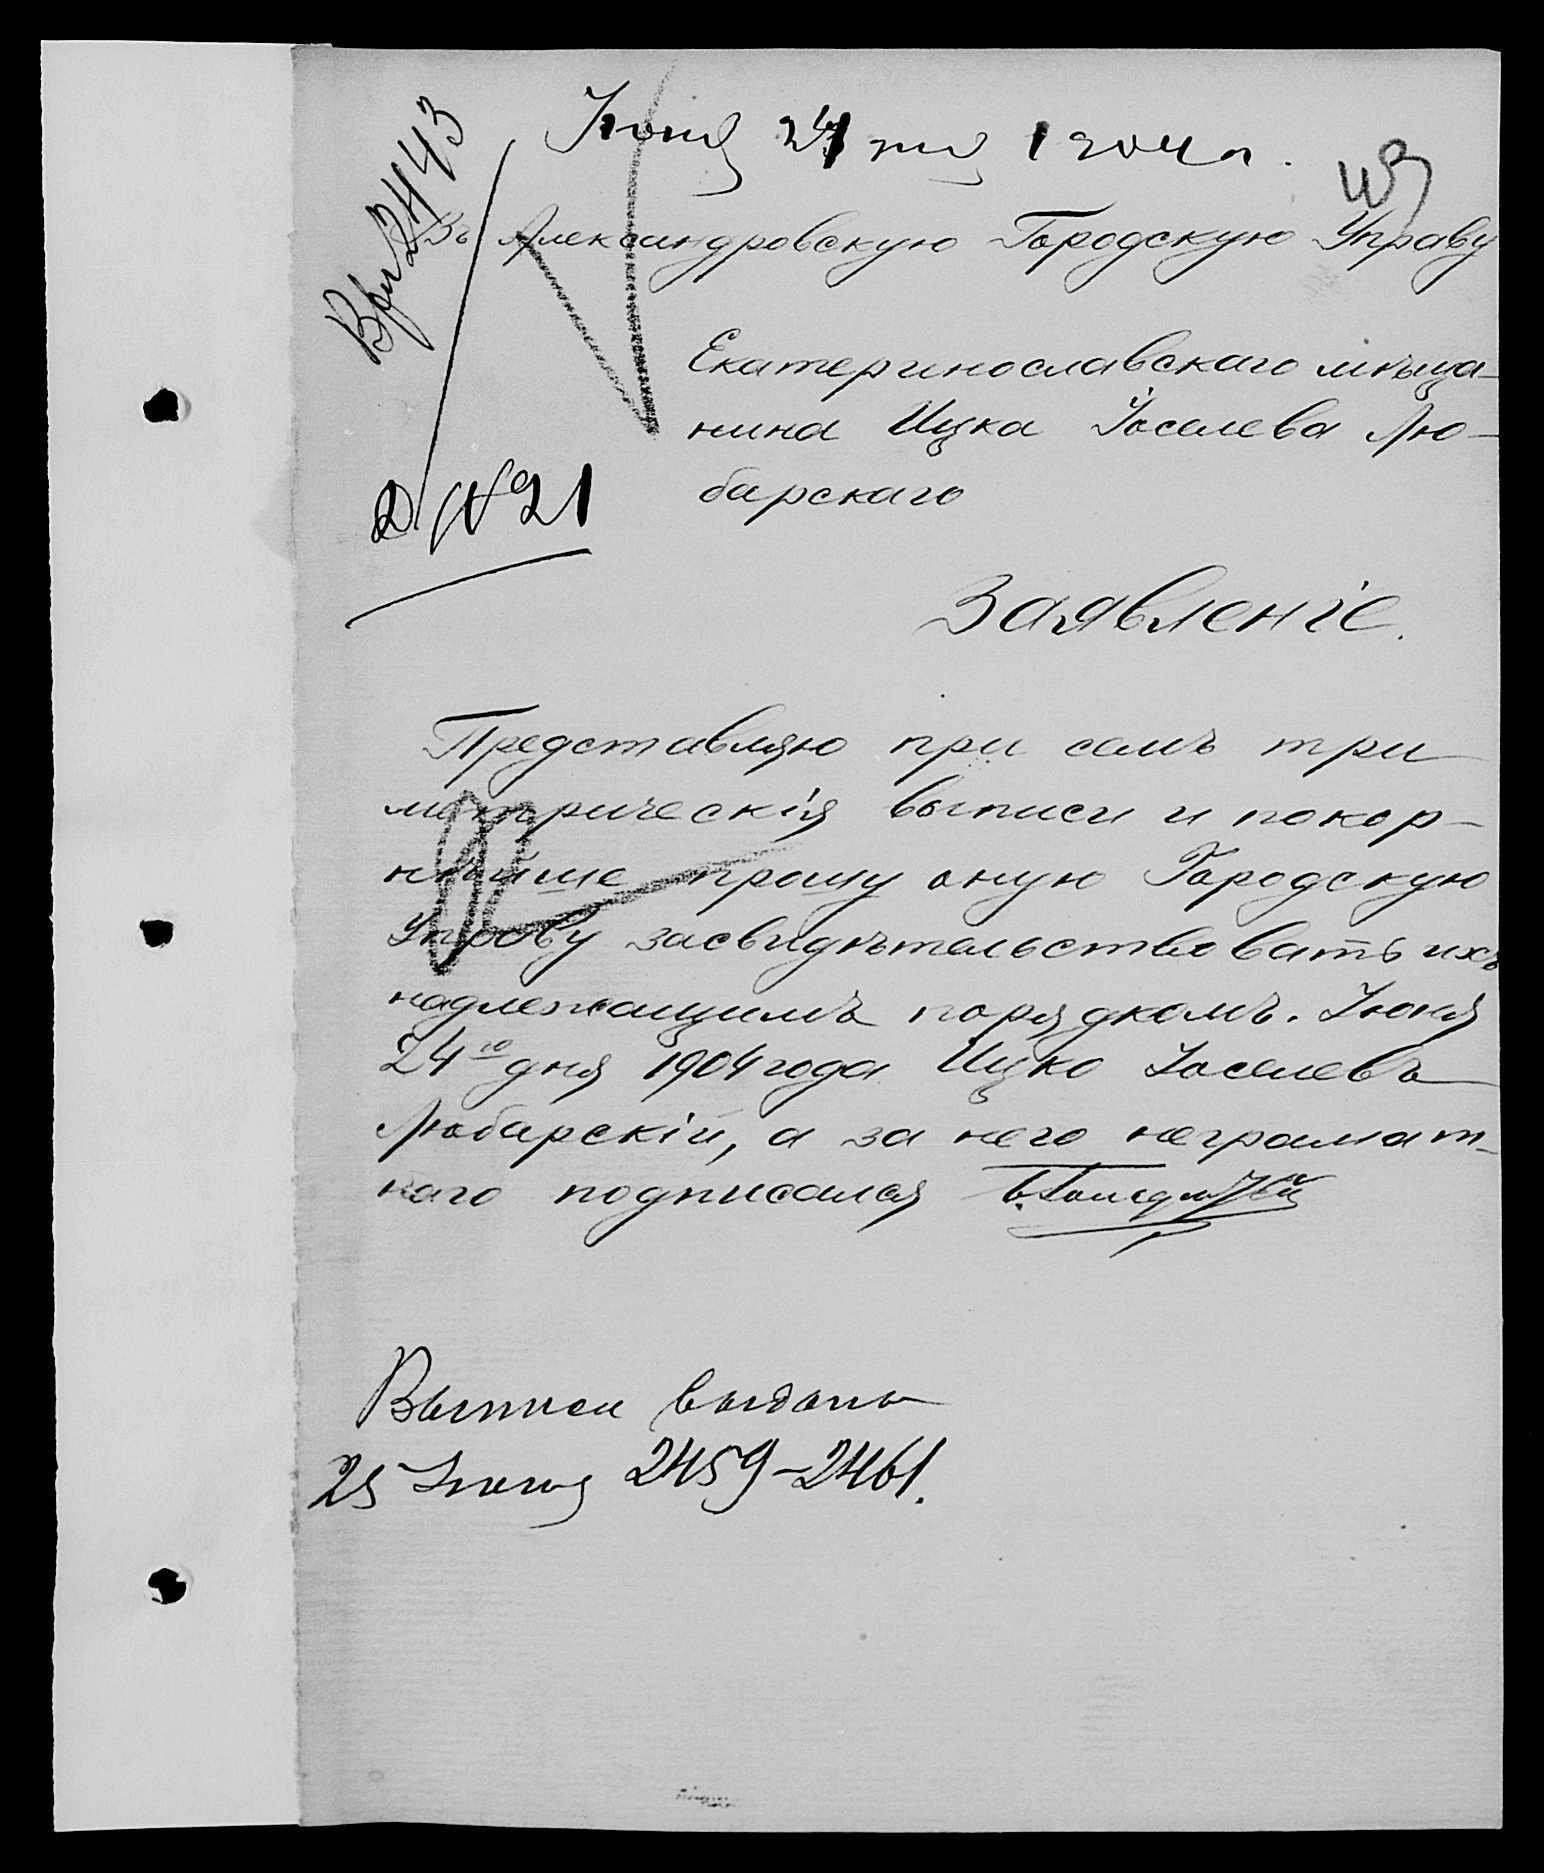 Іюня 24 дня 1904 г.
Вх 2443
Въ Александровскую Городскую Управу
Екатеринославскаго мѣща-
нина Ицка Іоселева Лю-
барскаго
Д. №21
Заявленіе.
Представляю при семъ три
метрическія выписи и покор-
нѣйше прошу оную Городскую
Управу засвидѣтельствовать ихъ
надлежащимъ порядкомъ. Іюня
24го дня 1904 года Ицко Іоселевъ
Любарскій, а за него неграмат-
наго подписался
Выписи выданы
25 Іюня 2459-2461.